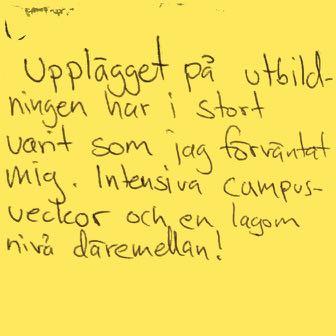 Upplägget på utbild-
ningen har i stort
varit som jag förväntat
mig. Intensiva campus-
veckor och en lagom
nivå däremellan!